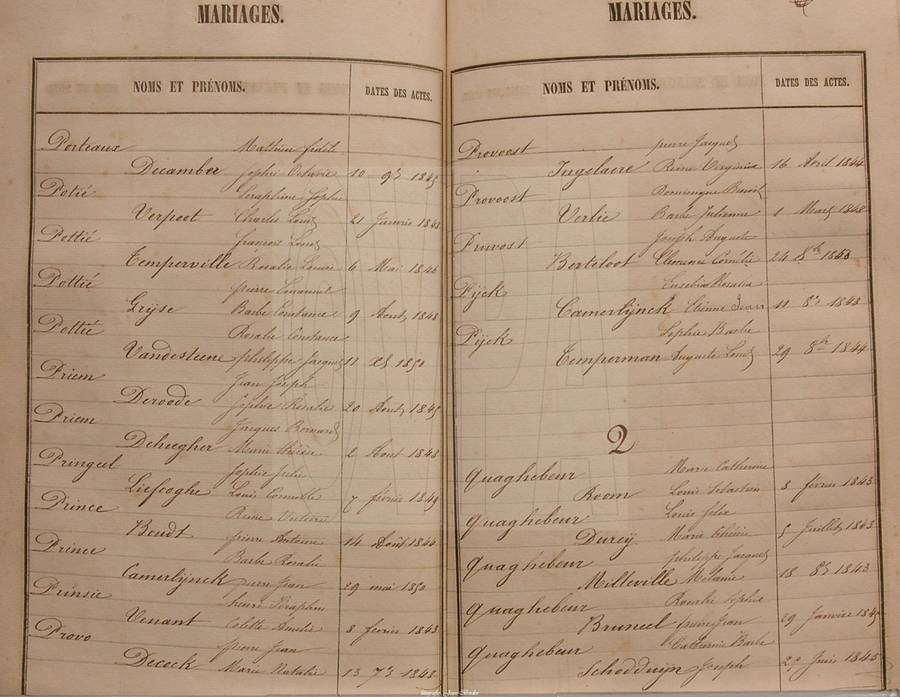 MARIAGES.
NOMS ET PRÉNOMS. DATES DES ACTES.
Porteaux Mathieu fidel
Decambee Sophie Victoire 10 9b 1845
Potié Seraphine Sophie
Verpoot Charles Louis 21 Janvier 1848
Pottié françois Louis
Temperville Rosalie Louise 6 Mai 1846
Pottié pierre Emanuel
Grÿse Barbe Constance 9 Aout 1848
Pottié Rosalie Constance
Vandesteene philippe Jacques 11 1850
Priem Jean Joseph
Deroode Sophie Rosalie 20 Aout 1845
Priem Jacques Bernard
Deheegher Marie thérèse 2 Aout 1843
Pringeel Sophie Julie
Liefooghe Louis Corneille 7 février 1849
Prince Reine Victoire
Beudt pierre Antoine 14 Août 1844
Prince Barbe Rosalie
Camerlÿnck pierre Jean 29 mai 1850
Prinsie henri Séraphin
Venant Colette Amelie 8 fevrier 1843
Provo pierre Jean
Decock Marie Natalie 13 7b 1848
MARIAGES.
NOMS ET PRÉNOMS. DATES DES ACTES.
Provoost pierre Jacques
Ingelaere Reine Virginie 16 Avril 1844
Provoost Dominique Benoit
Verlie Barbe Julienne 1 Mars 1848
Pruvost Joseph Auguste
Berteloot Clemence Cornélie 24 8b 1850
Pÿck Eusebie Rosalie
Camerlÿnck Etienne 11 8b 1848
Pÿck Sophie Barbe
Temperman Auguste Louis 29 8b 1844
2
Quaghebeur Marie Catherine
Room Louis Sebastien 8 fevrier 1843
Quaghebeur Louis felix
Dureÿ Marie 5 Juillet 1843
Quaghebeur philippe Jacques
Milleville Melanie 18 8b 1843
Quaghebeur Rosalie Sophie
Bruneel pierre Jean 29 Janvier 1845
Quaghebeur Catherine Barbe
Schodduÿn Joseph 25 Juin 1845